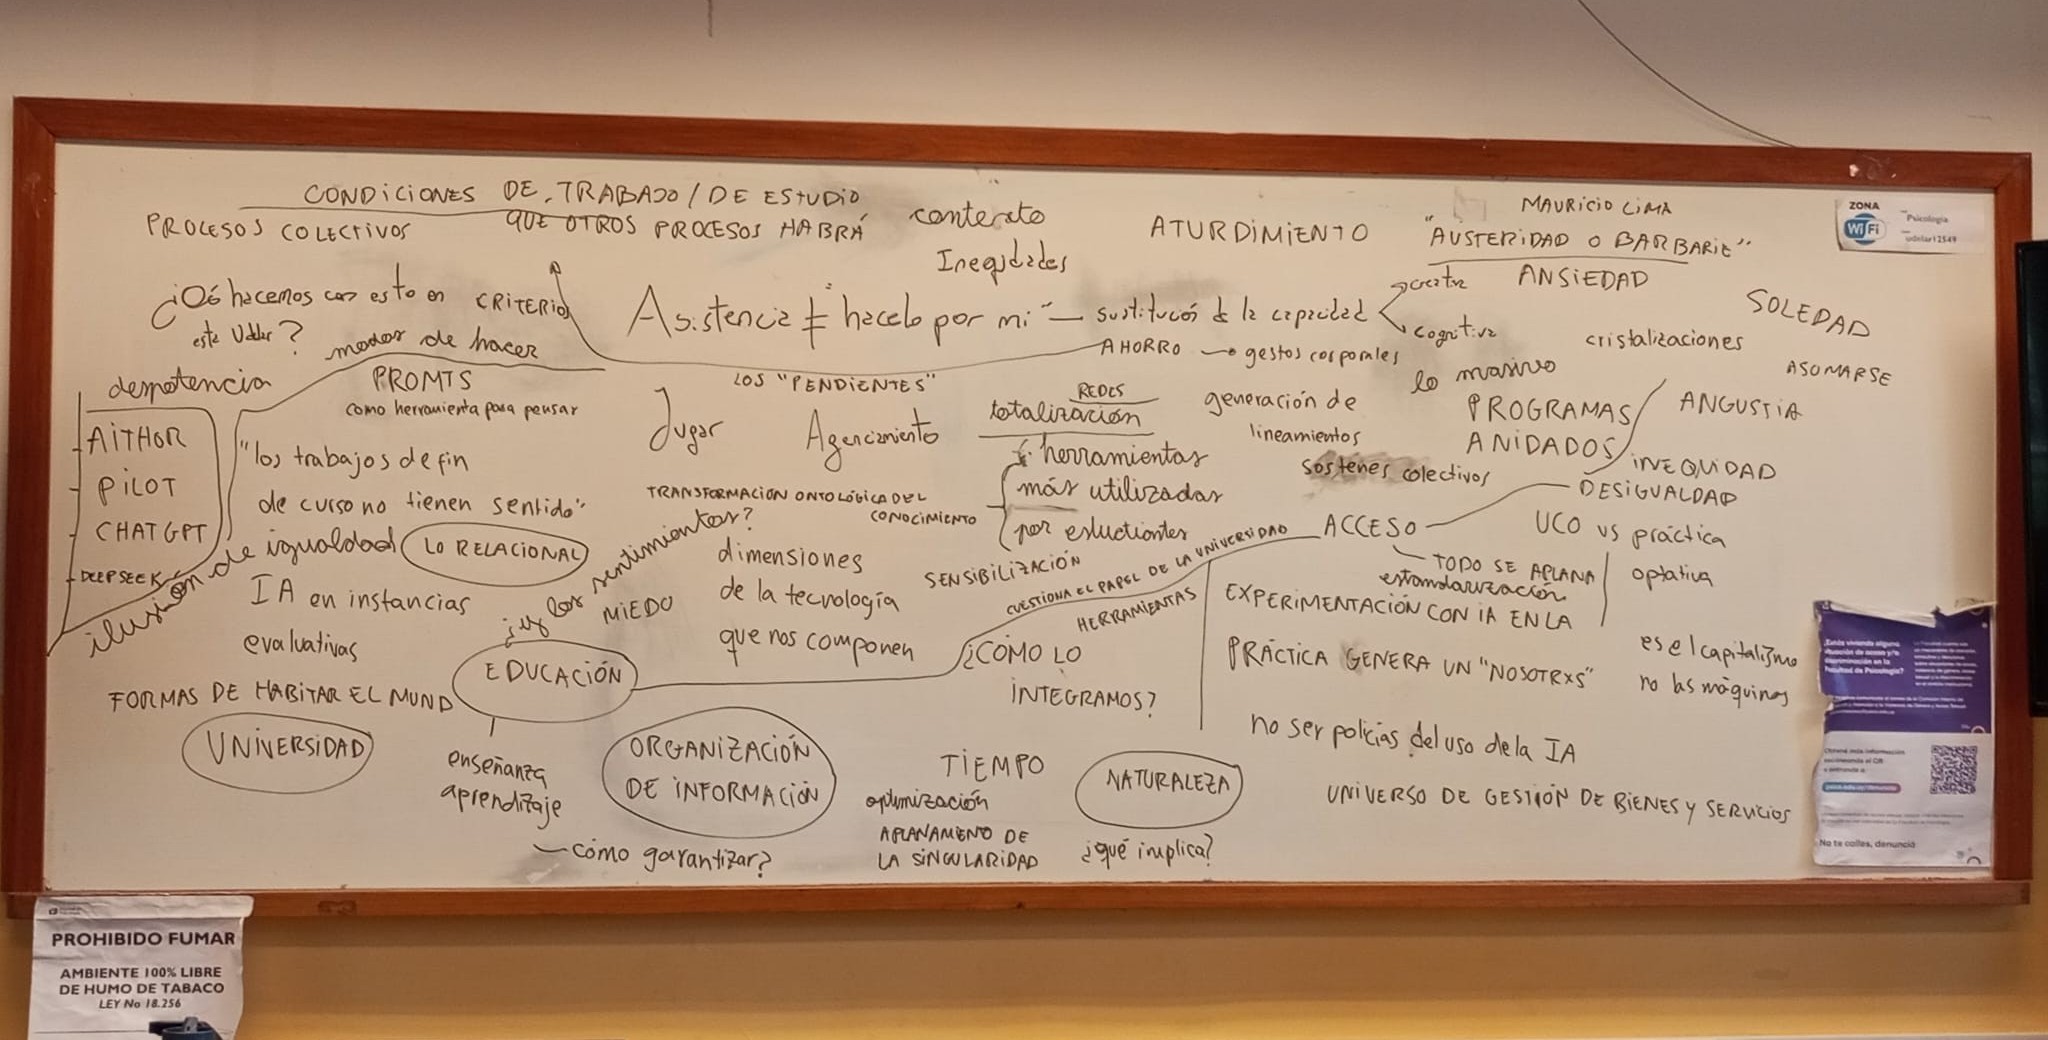 CONDICIONES DE TRABAJO / DE ESTUDIO
PROCESOS COLECTIVOS
QUE OTROS PROCESOS HABRÁ
contexto
Ineqidades
ATURDIMIENTO
MAURICIO LIMA
"AUSTERIDAD O BARBARIE"
ANSIEDAD
SOLEDAD
ZONA
WiFi
Psicología
udelar12549
¿Qé hacemos con esto en
esta Udelar?
CRITERIOS
modos de hacer
Asistencia ≠ "hacelo por mi" — sustitución de la capacidad
creativa
cognitiva
AHORRO → gestos corporales
cristalizaciones
ASOMARSE
lo masivo
despotencia
PROMTS
como herramienta para pensar
LOS "PENDIENTES"
Jugar
Agenciamiento
REDES
totalización
generación de
lineamientos
sostenes colectivos
PROGRAMAS
ANIDADOS
ANGUSTIA
INEQUIDAD
DESIGUALDAD
AITHOR
PILOT
CHATGPT
DEEPSEEK
"los trabajos de fin
de curso no tienen sentido"
TRANSFORMACION ONTOLÓGICA DEL
CONOCIMIENTO
herramientas
más utilizadas
por estudiantes
ACCESO
UCO vs práctica
optativa
TODO SE APLANA
estandarización
ilusión de igualdad
LO RELACIONAL
¿y los sentimientos?
MIEDO
dimensiones
de la tecnología
que nos componen
SENSIBILIZACIÓN
CUESTIONA EL PAPEL DE LA UNIVERSIDAD
HERRAMIENTAS
IA en instancias
evaluativas
EDUCACIÓN
¿CÓMO LO
INTEGRAMOS?
EXPERIMENTACIÓN CON IA EN LA
PRÁCTICA GENERA UN "NOSOTRXS"
es el capitalismo
no las máquinas
FORMAS DE HABITAR EL MUND
UNIVERSIDAD
enseñanza
aprendizaje
cómo garantizar?
ORGANIZACIÓN
DE INFORMACIÓN
TIEMPO
optimización
APLANAMIENTO DE
LA SINGULARIDAD
NATURALEZA
¿qué implica?
no ser policías del uso de la IA
UNIVERSO DE GESTIÓN DE BIENES Y SERVICIOS
¿Estás viviendo alguna
situación de acoso y/o
discriminación en la
Facultad de Psicología?
No te calles, denunciá
PROHIBIDO FUMAR
AMBIENTE 100% LIBRE
DE HUMO DE TABACO
LEY No 18.256